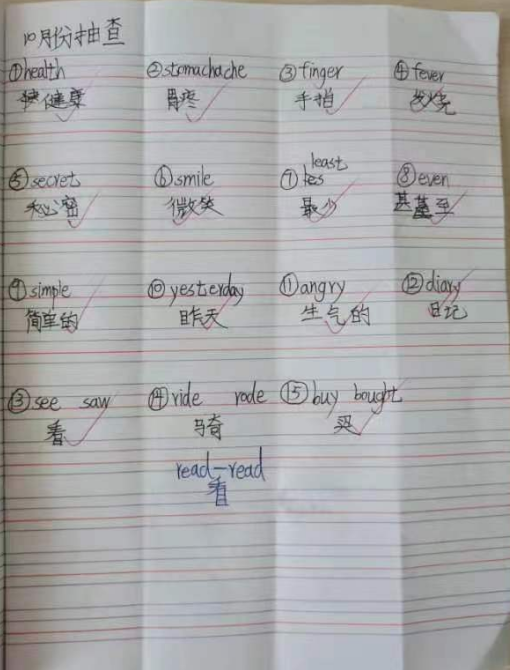 10月份抽查
①health ②stomachache ③finger ④fever
健康 胃疼 手指 发烧
least
⑤secret ⑥smile ⑦ ⑧even
秘密 微笑 最少 甚至
⑨simple ⑩yesterday ⑪angry ⑫diary
简单的 昨天 生气的 日记
⑬see saw ⑭ride rode ⑮buy bought
看 骑 买
read—read
看